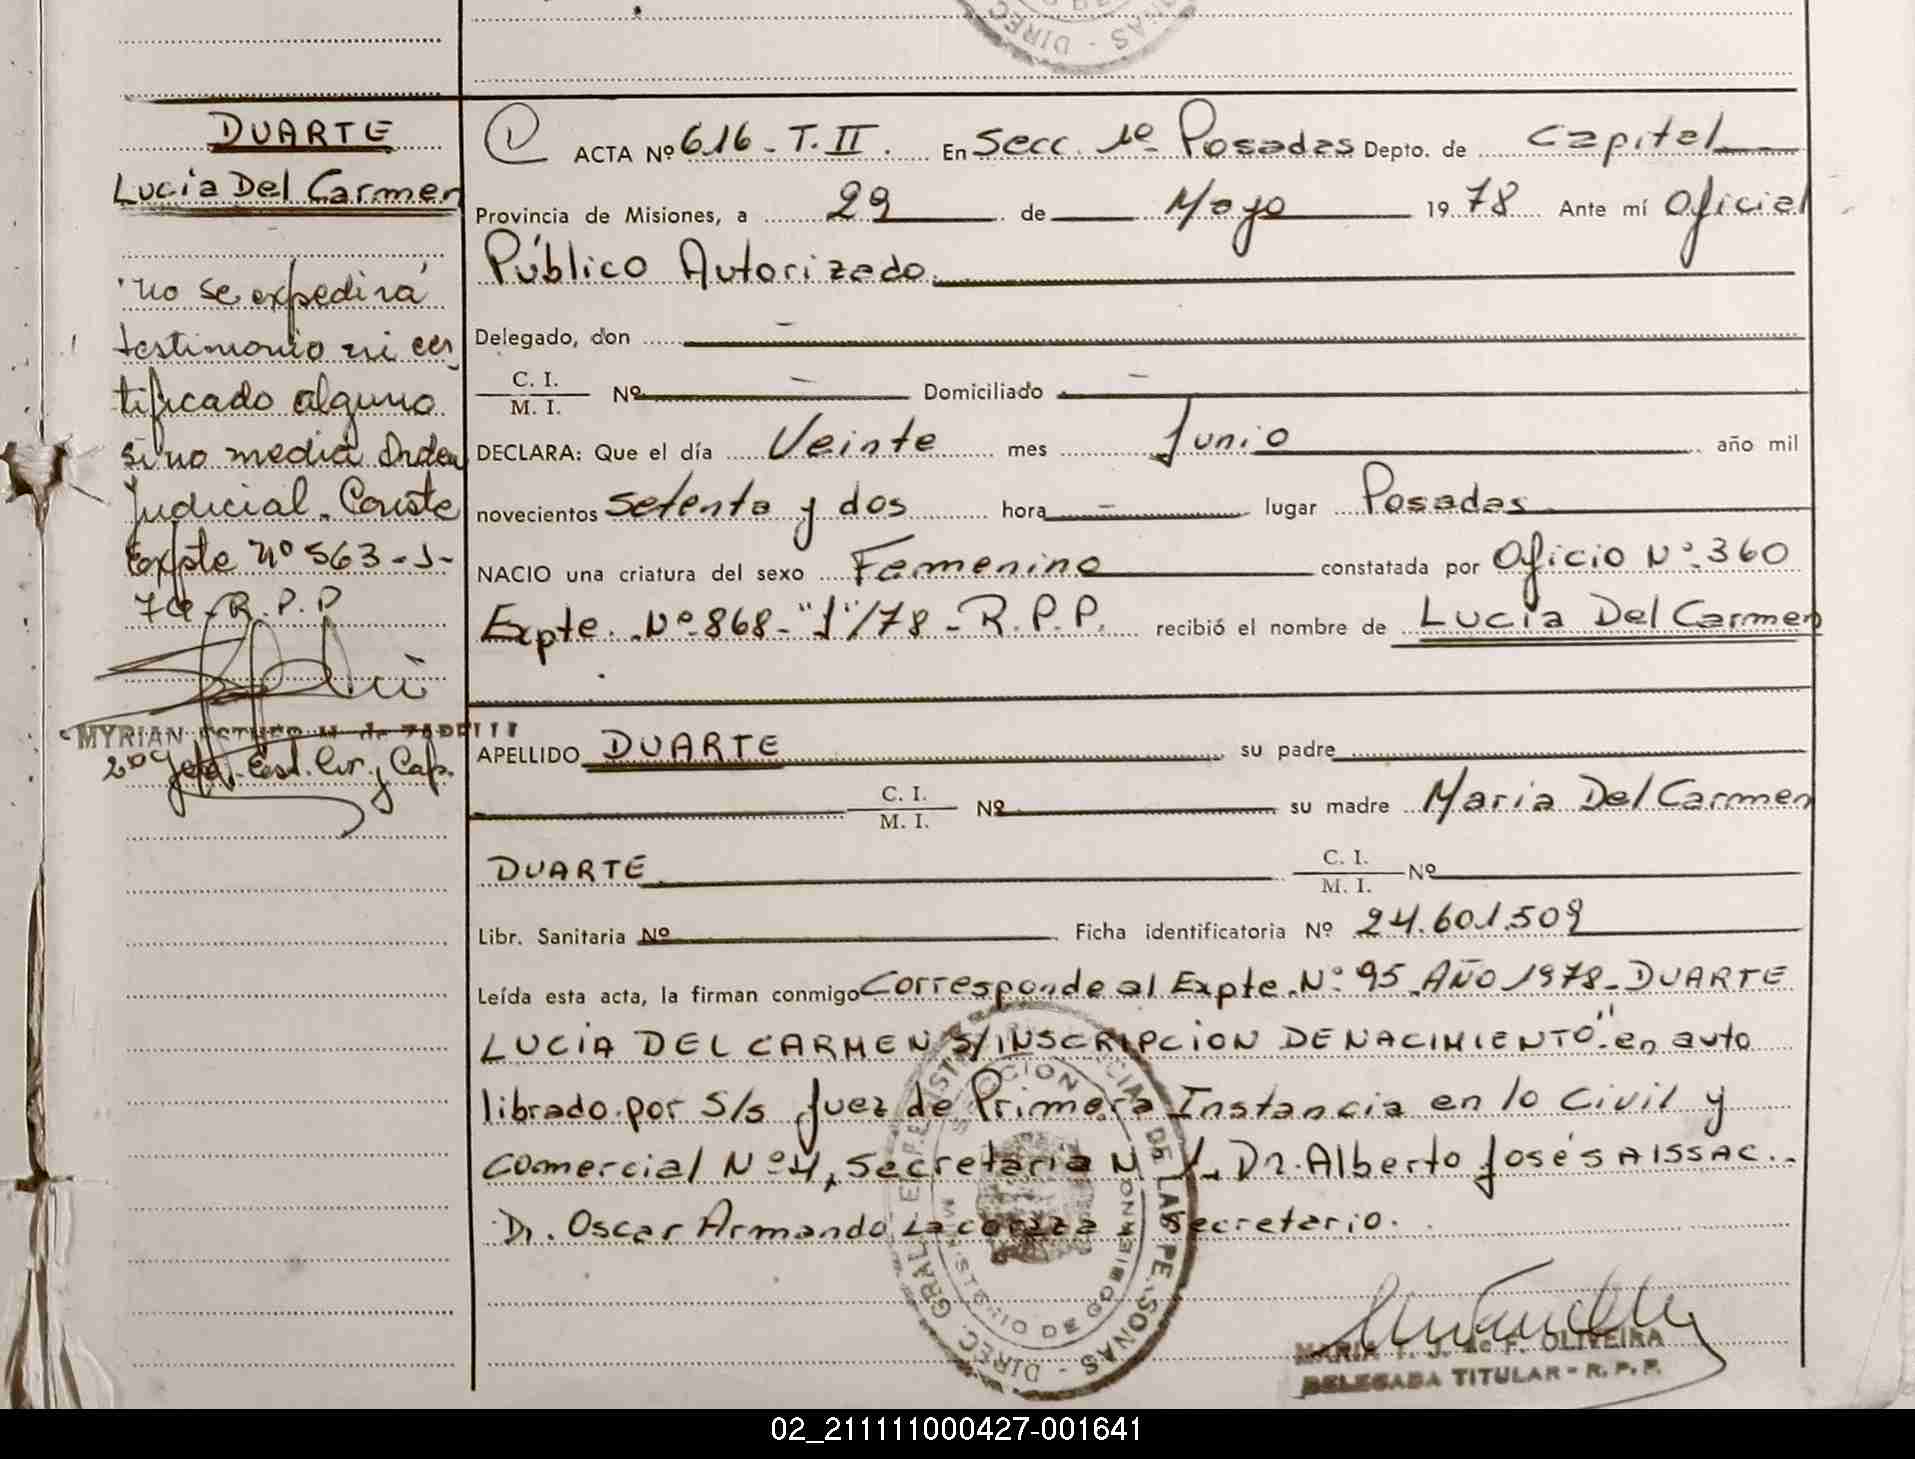 DUARTE
Lucía Del Carmen
"no se expedirá
testimonio ni cer
tificado alguno
si no media Orden
Judicial. Conste
Expte nº 563-J-
R.P.P
MYRIAN ESTHER M. de
2º Jefa Est. Civ. y Cap.
ACTA Nº 616 - T. II. En Secc. 1º Posadas Depto. de Capital
Provincia de Misiones, a 29 de Mayo 1978 Ante mí Oficial
Público Autorizado.
Delegado, don -
C. I. / M. I. Nº - Domiciliado -
DECLARA: Que el día Veinte mes Junio año mil
novecientos setenta y dos hora - lugar Posadas
NACIO una criatura del sexo Femenino constatada por Oficio Nº 360
Expte. Nº 868-"J"/78 - R.P.P. recibió el nombre de Lucía Del Carmen
APELLIDO DUARTE su padre
C. I. / M. I. Nº su madre Maria Del Carmen
DUARTE C. I. / M. I. Nº
Libr. Sanitaria Nº Ficha identificatoria Nº 24.601.509
Leída esta acta, la firman conmigo Corresponde al Expte. Nº 95 AÑO 1978 - DUARTE
LUCÍA DEL CARMEN S/INSCRIPCION DE NACIMIENTO" en auto
librado por S/s Juez de Primera Instancia en lo Civil y
Comercial Nº 4, Secretaria Nº 1 - Dr. Alberto José SAISSAC..
Dr. Oscar Armando secretario.
DIREC. GRAL. PERSONAS
MINISTERIO DE GOBIERNO
MARIA T. J. de F. OLIVEIRA
DELEGADA TITULAR - R. P. P.
02_211111000427-001641